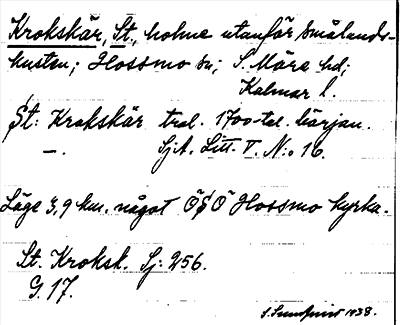 Krokskär, St., holme utanför Smålands-
kusten; Hossmo sn; S. Möre hd;
Kalmar l.
St: Krokskär trol. 1700-tal. början.
—. Sj.A. Litt. V. N:o 16.
Läge 3,9 km. något Ö S Ö Hossmo kyrka.
St. Kroksk. Sj: 256.
G. 17.
S. Sundqvist 1938.